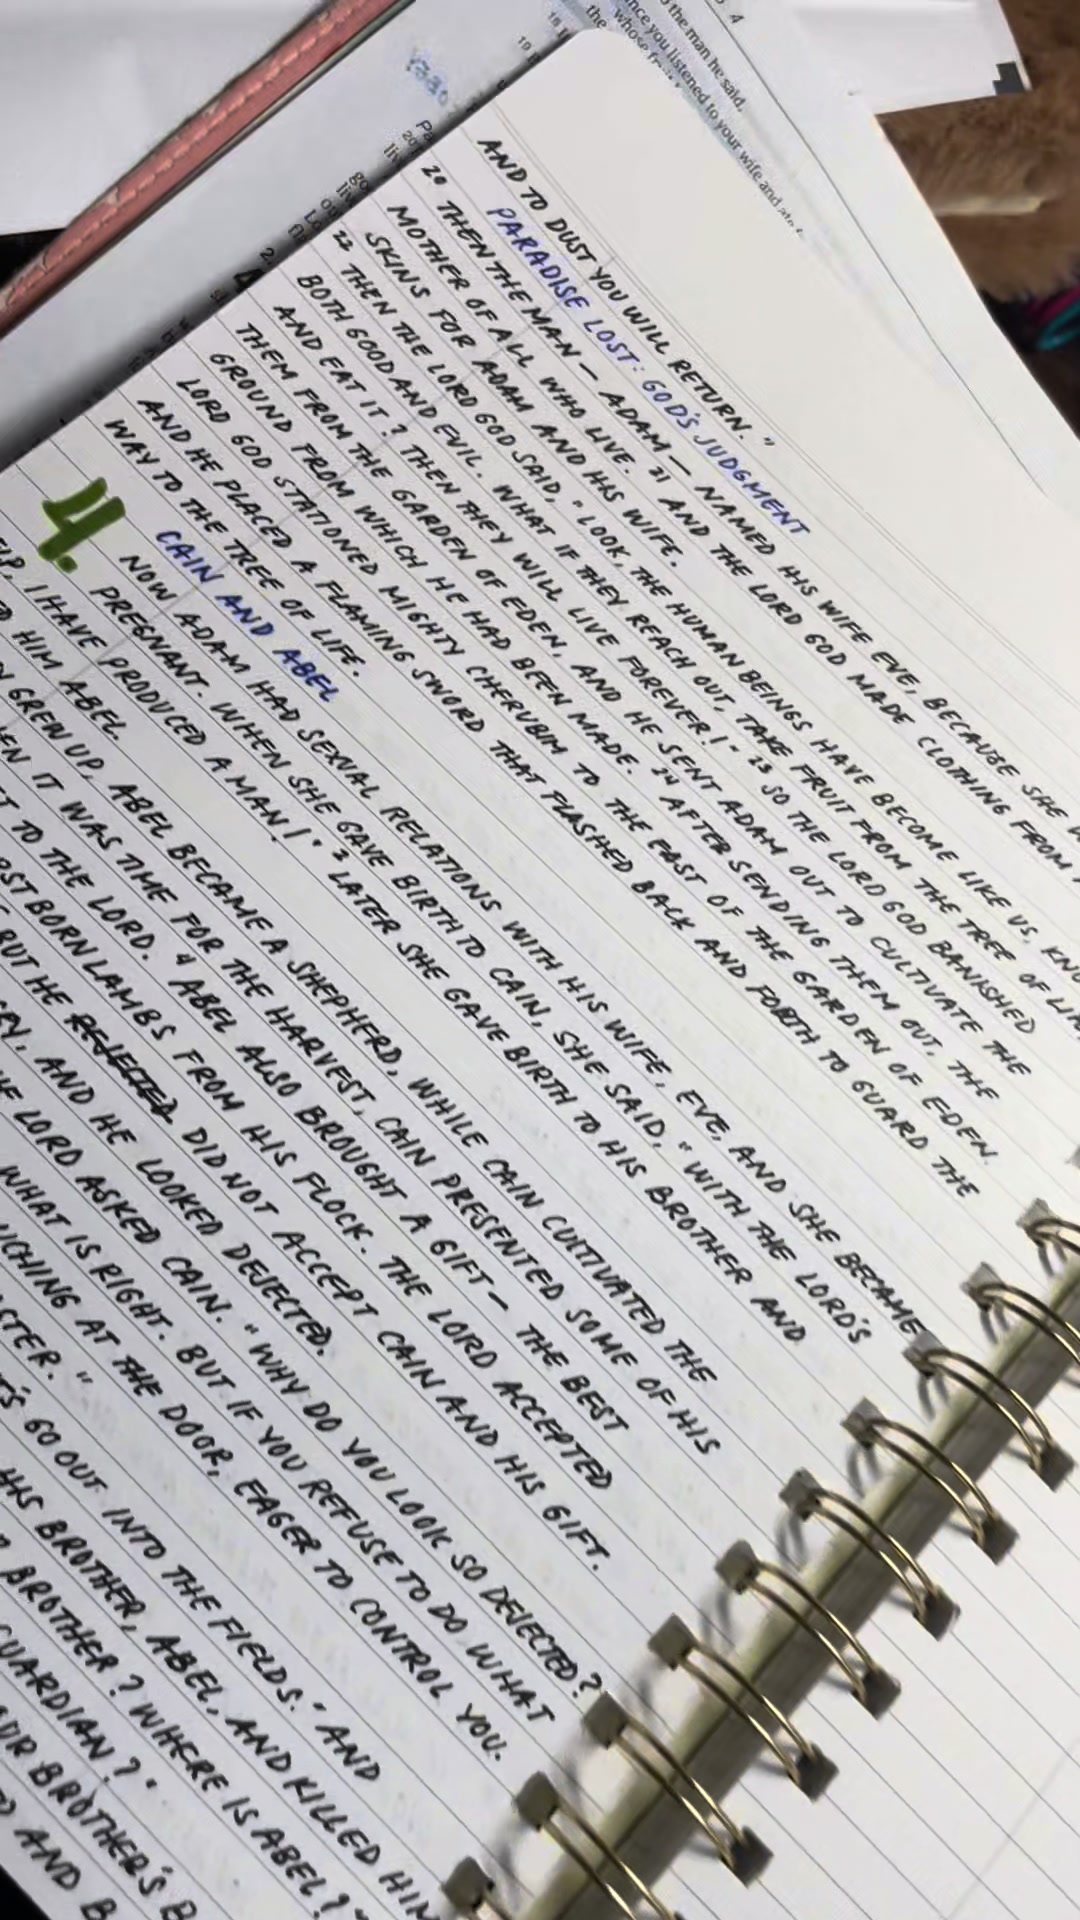 the man he said,
since you listened to your wife and ate
whose
the
18
19
AND TO DUST YOU WILL RETURN."
PARADISE LOST: GOD'S JUDGMENT
20 THEN THE MAN — ADAM — NAMED HIS WIFE EVE, BECAUSE SHE
MOTHER OF ALL WHO LIVE. 21 AND THE LORD GOD MADE CLOTHING FROM
SKINS FOR ADAM AND HIS WIFE.
22 THEN THE LORD GOD SAID, "LOOK, THE HUMAN BEINGS HAVE BECOME LIKE US, KNO
BOTH GOOD AND EVIL. WHAT IF THEY REACH OUT, TAKE FRUIT FROM THE TREE OF LI
AND EAT IT? THEN THEY WILL LIVE FOREVER!" 23 SO THE LORD GOD BANISHED
THEM FROM THE GARDEN OF EDEN, AND HE SENT ADAM OUT TO CULTIVATE THE
GROUND FROM WHICH HE HAD BEEN MADE. 24 AFTER SENDING THEM OUT, THE
LORD GOD STATIONED MIGHTY CHERUBIM TO THE EAST OF THE GARDEN OF EDEN.
AND HE PLACED A FLAMING SWORD THAT FLASHED BACK AND FORTH TO GUARD THE
WAY TO THE TREE OF LIFE.
4.
CAIN AND ABEL
NOW ADAM HAD SEXUAL RELATIONS WITH HIS WIFE, EVE, AND SHE BECAME
PREGNANT. WHEN SHE GAVE BIRTH TO CAIN, SHE SAID, "WITH THE LORD'S
ELP, I HAVE PRODUCED A MAN!" 2 LATER SHE GAVE BIRTH TO HIS BROTHER AND
ED HIM ABEL.
Y GREW UP, ABEL BECAME A SHEPHERD, WHILE CAIN CULTIVATED THE
EN IT WAS TIME FOR THE HARVEST, CAIN PRESENTED SOME OF HIS
FT TO THE LORD. 4 ABEL ALSO BROUGHT A GIFT — THE BEST
RST BORN LAMBS FROM HIS FLOCK. THE LORD ACCEPTED
BUT HE REJECTED DID NOT ACCEPT CAIN AND HIS GIFT.
RY, AND HE LOOKED DEJECTED.
HE LORD ASKED CAIN. "WHY DO YOU LOOK SO DEJECTED?
WHAT IS RIGHT. BUT IF YOU REFUSE TO DO WHAT
UCHING AT THE DOOR, EAGER TO CONTROL YOU.
ASTER."
T'S GO OUT INTO THE FIELDS." AND
HIS BROTHER, ABEL, AND KILLED HIM
BROTHER? WHERE IS ABEL?"
GUARDIAN?"
OUR BROTHER'S B
AND B